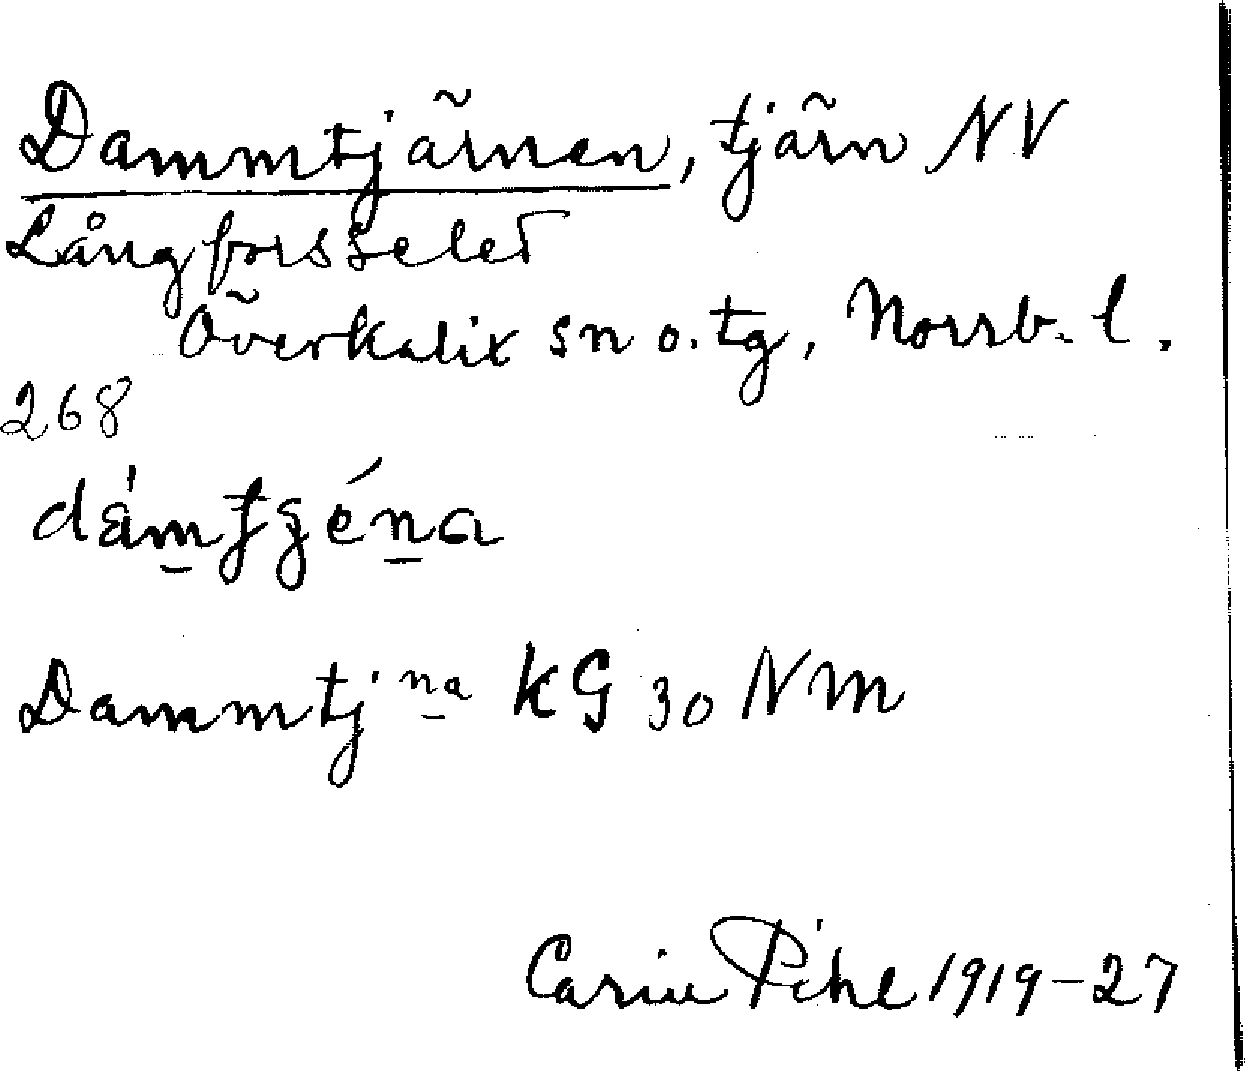 Dammtjärnen, tjärn NV
Långforsselet
Överkalix sn o. tg, Norrb. l.
268
Dammtjna KG 30 NM
Carin Pihl 1919-27